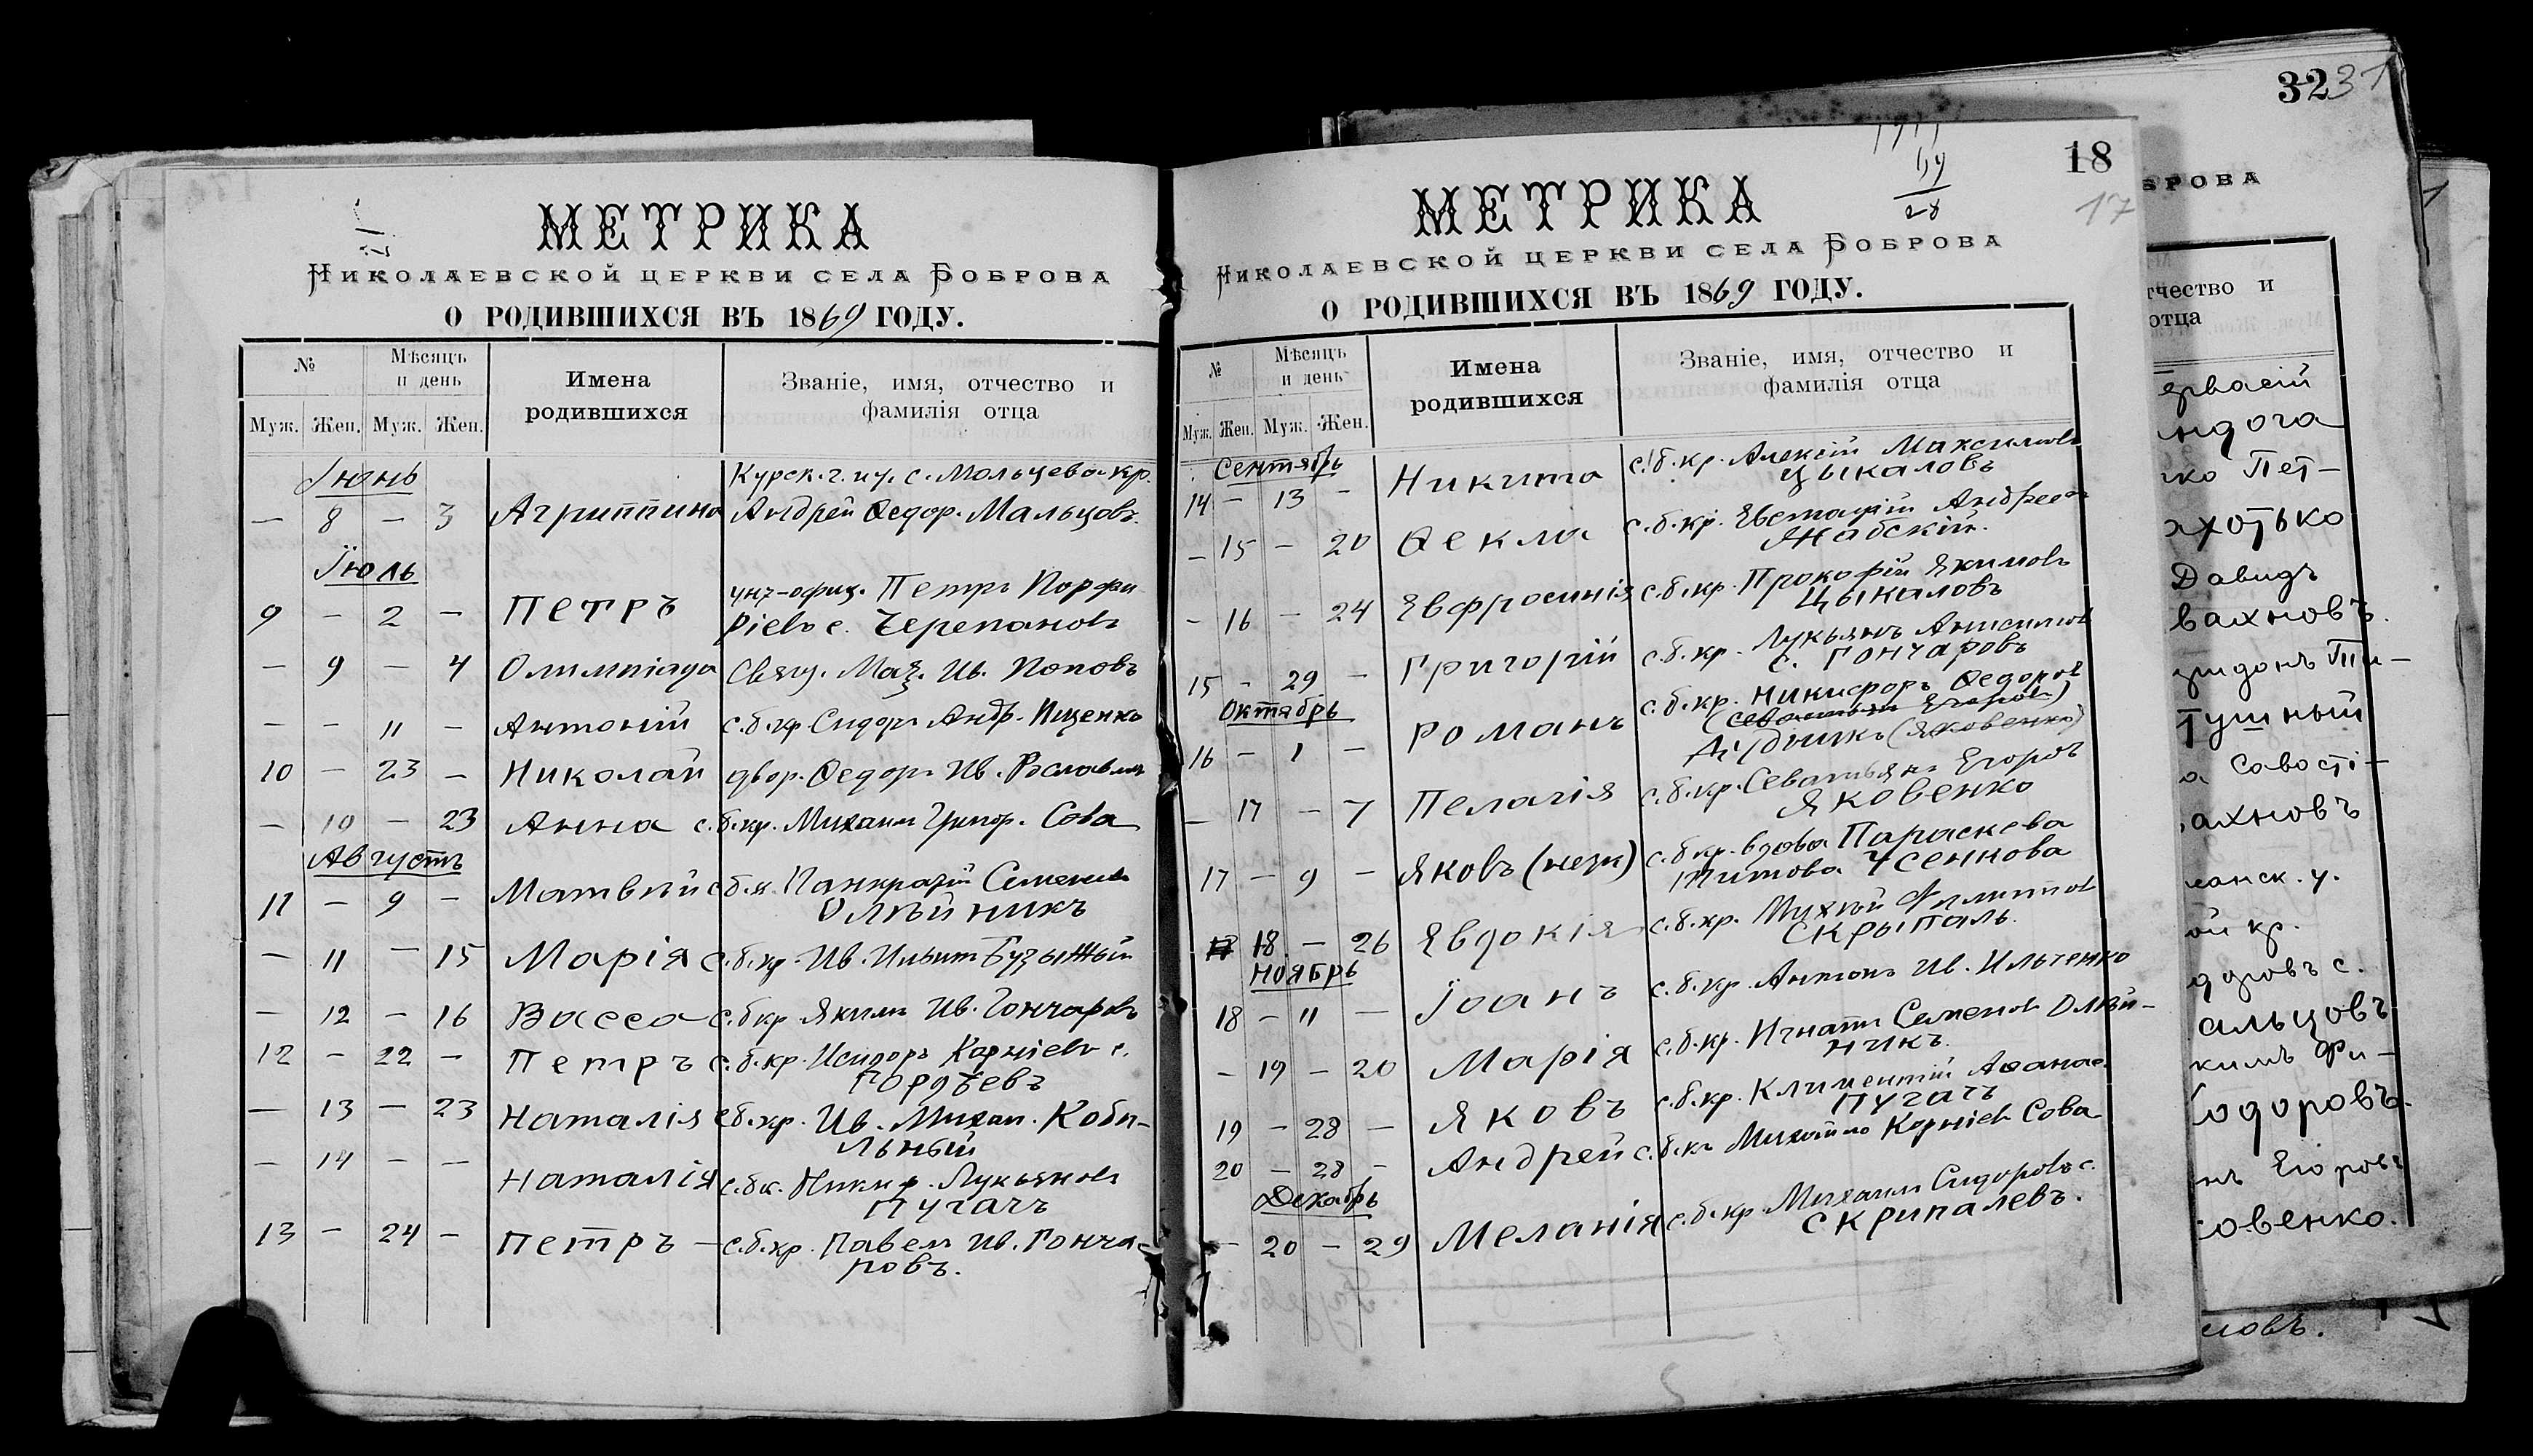 МЕТРИКА
НИКОЛАЕВСКОЙ ЦЕРКВИ СЕЛА БОБРОВА
О РОДИВШИХСЯ ВЪ 1869 ГОДУ.
№ Мѣсяцъ и день Имена родившихся Званіе, имя, отчество и фамилія отца
Муж. Жен. Муж. Жен.
Іюнь Курск. г. и у. с. Мольцева кр.
— 8 — 3 Агриппина Андрей Ѳедор. Мальцовъ.
Їюль
9 — 2 — Петръ унт-офиц. Петръ Порфи
ріевъ с. Черепановъ
— 9 — 4 Олимпіада Свящ. Ив. Поповъ
— — 11 — Антоній с.б.кр Сидоръ Андр. Ищенко
10 — 23 — Николай двор. Ѳедоръ Ив.
— 10 — 23 Анна с.б.кр. Михаилъ Григор. Сова
Августъ
11 — 9 — Матвѣй с.б.к. Панкратій Семеновъ
Олѣйникъ
— 11 — 15 Марія с.б.кр. Ив.
— 12 — 16 Васса с.б кр Якимъ Ив. Гончаровъ
12 — 22 — Петръ с.б.кр. Исидоръ Корніевъ с.
Гордѣевъ
— 13 — 23 Наталія с.б.кр. Ив. Михаи. Коби-
льный
— 14 — — Наталія с.б.к. Никиф. Лукьяновъ
Пугачъ
13 — 24 — Петръ — с.б.кр. Павелъ Ив. Гонча-
ровъ.
18
17
28
МЕТРИКА
НИКОЛАЕВСКОЙ ЦЕРКВИ СЕЛА БОБРОВА
О РОДИВШИХСЯ ВЪ 1869 ГОДУ.
№ Мѣсяцъ и день Имена родившихся Званіе, имя, отчество и фамилія отца
Муж. Жен. Муж. Жен.
Сентябрь
14 — 13 — Никита с.б.кр. Алексій Максимовъ
Цыкаловъ
— 15 — 20 Ѳекла с.б.кр. Евстафій Андреевъ
Жабскій.
— 16 — 24 Евфросинія с.б.кр. Прокофій Якимовъ
Цыкаловъ
15 — 29 — Григорій с.б.кр. Лукьянъ Анисимов
с. Гончаровъ
Октябрь
16 — 1 — Романъ с.б.кр. Никифоръ Ѳедоровъ
(Севастьян Егоровъ)
Дудникъ (Яковенко)
— 17 — 7 Пелагія с.б.кр. Севастьянъ Егоровъ
Яковенко
17 — 9 — Яковъ (незк) с.б кр. вдова Параскева
Титова Усенкова
18 — 26 Евдокія с.б.кр. Михей Филиппов
Скрыпаль.
Ноябрь
18 — 11 — Їоанъ с.б.кр. Антонъ Ив. Ильченко
— 19 — 20 Марія с.б.кр. Игнатъ Семеновъ Олѣй-
никъ.
19 — 28 — Яковъ с.б.кр. Климентій Аѳанас.
Пугачъ
20 — 28 — Андрей с.б.кр Михайло Корніевъ Сова
Декабрь
— 20 — 29 Меланія с.б.кр Михаилъ Сидоровъ с.
Скрипалевъ.
32 31
БРОВА
чество и
отца
ко Пет-
Давидъ
вахновъ.
Тушный
а Савості-
ахновъ
манск. у.
ой кр.
альцовъ
кимъ Фи-
одоровъ.
нъ Егоровъ
овенко.
ловъ.